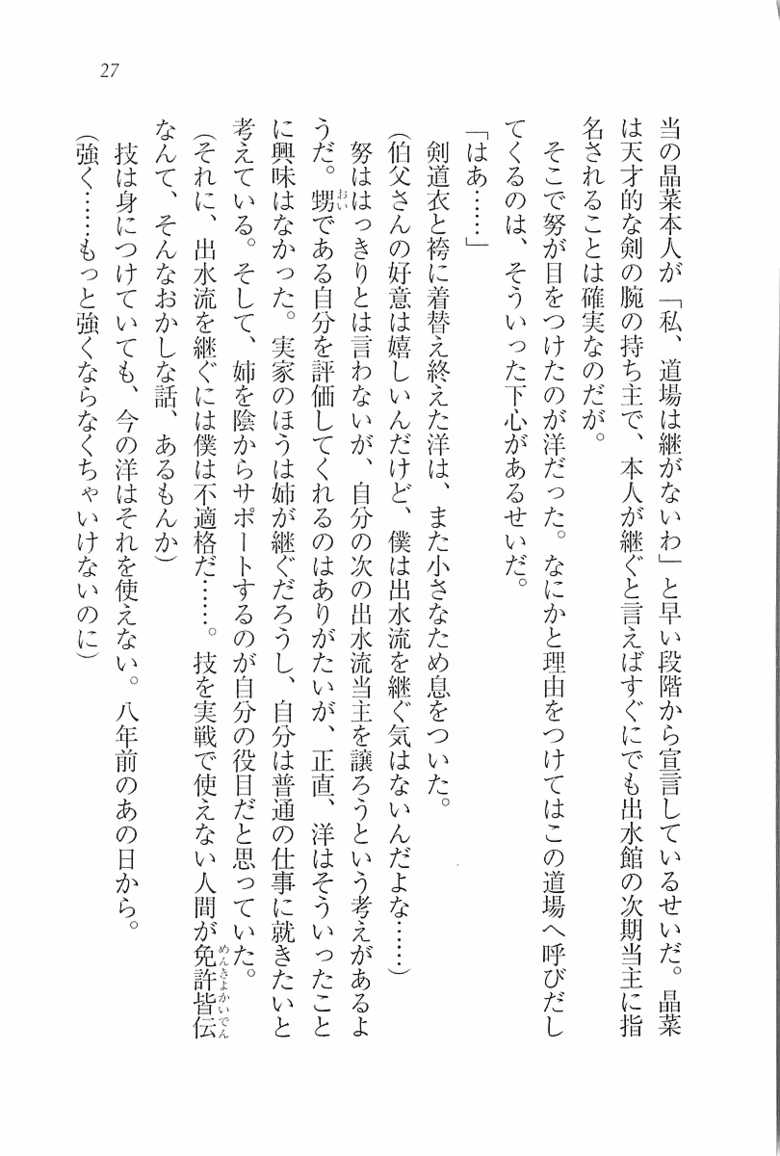 27
当の晶菜本人が「私、道場は継がないわ」と早い段階から宣言しているせいだ。晶菜
は天才的な剣の腕の持ち主で、本人が継ぐと言えばすぐにでも出水館の次期当主に指
名されることは確実なのだが。
そこで努が目をつけたのが洋だった。なにかと理由をつけてはこの道場へ呼びだし
てくるのは、そういった下心があるせいだ。
「はあ……」
剣道衣と袴に着替え終えた洋は、また小さなため息をついた。
(伯父さんの好意は嬉しいんだけど、僕は出水流を継ぐ気はないんだよな……)
努ははっきりとは言わないが、自分の次の出水流当主を譲ろうという考えがあるよ
うだ。甥おいである自分を評価してくれるのはありがたいが、正直、洋はそういったこと
に興味はなかった。実家のほうは姉が継ぐだろうし、自分は普通の仕事に就きたいと
考えている。そして、姉を陰からサポートするのが自分の役目だと思っていた。
(それに、出水流を継ぐには僕は不適格だ……。技を実戦で使えない人間が免許皆伝めんきよかいでん
なんて、そんなおかしな話、あるもんか)
技は身につけていても、今の洋はそれを使えない。八年前のあの日から。
(強く……もっと強くならなくちゃいけないのに)